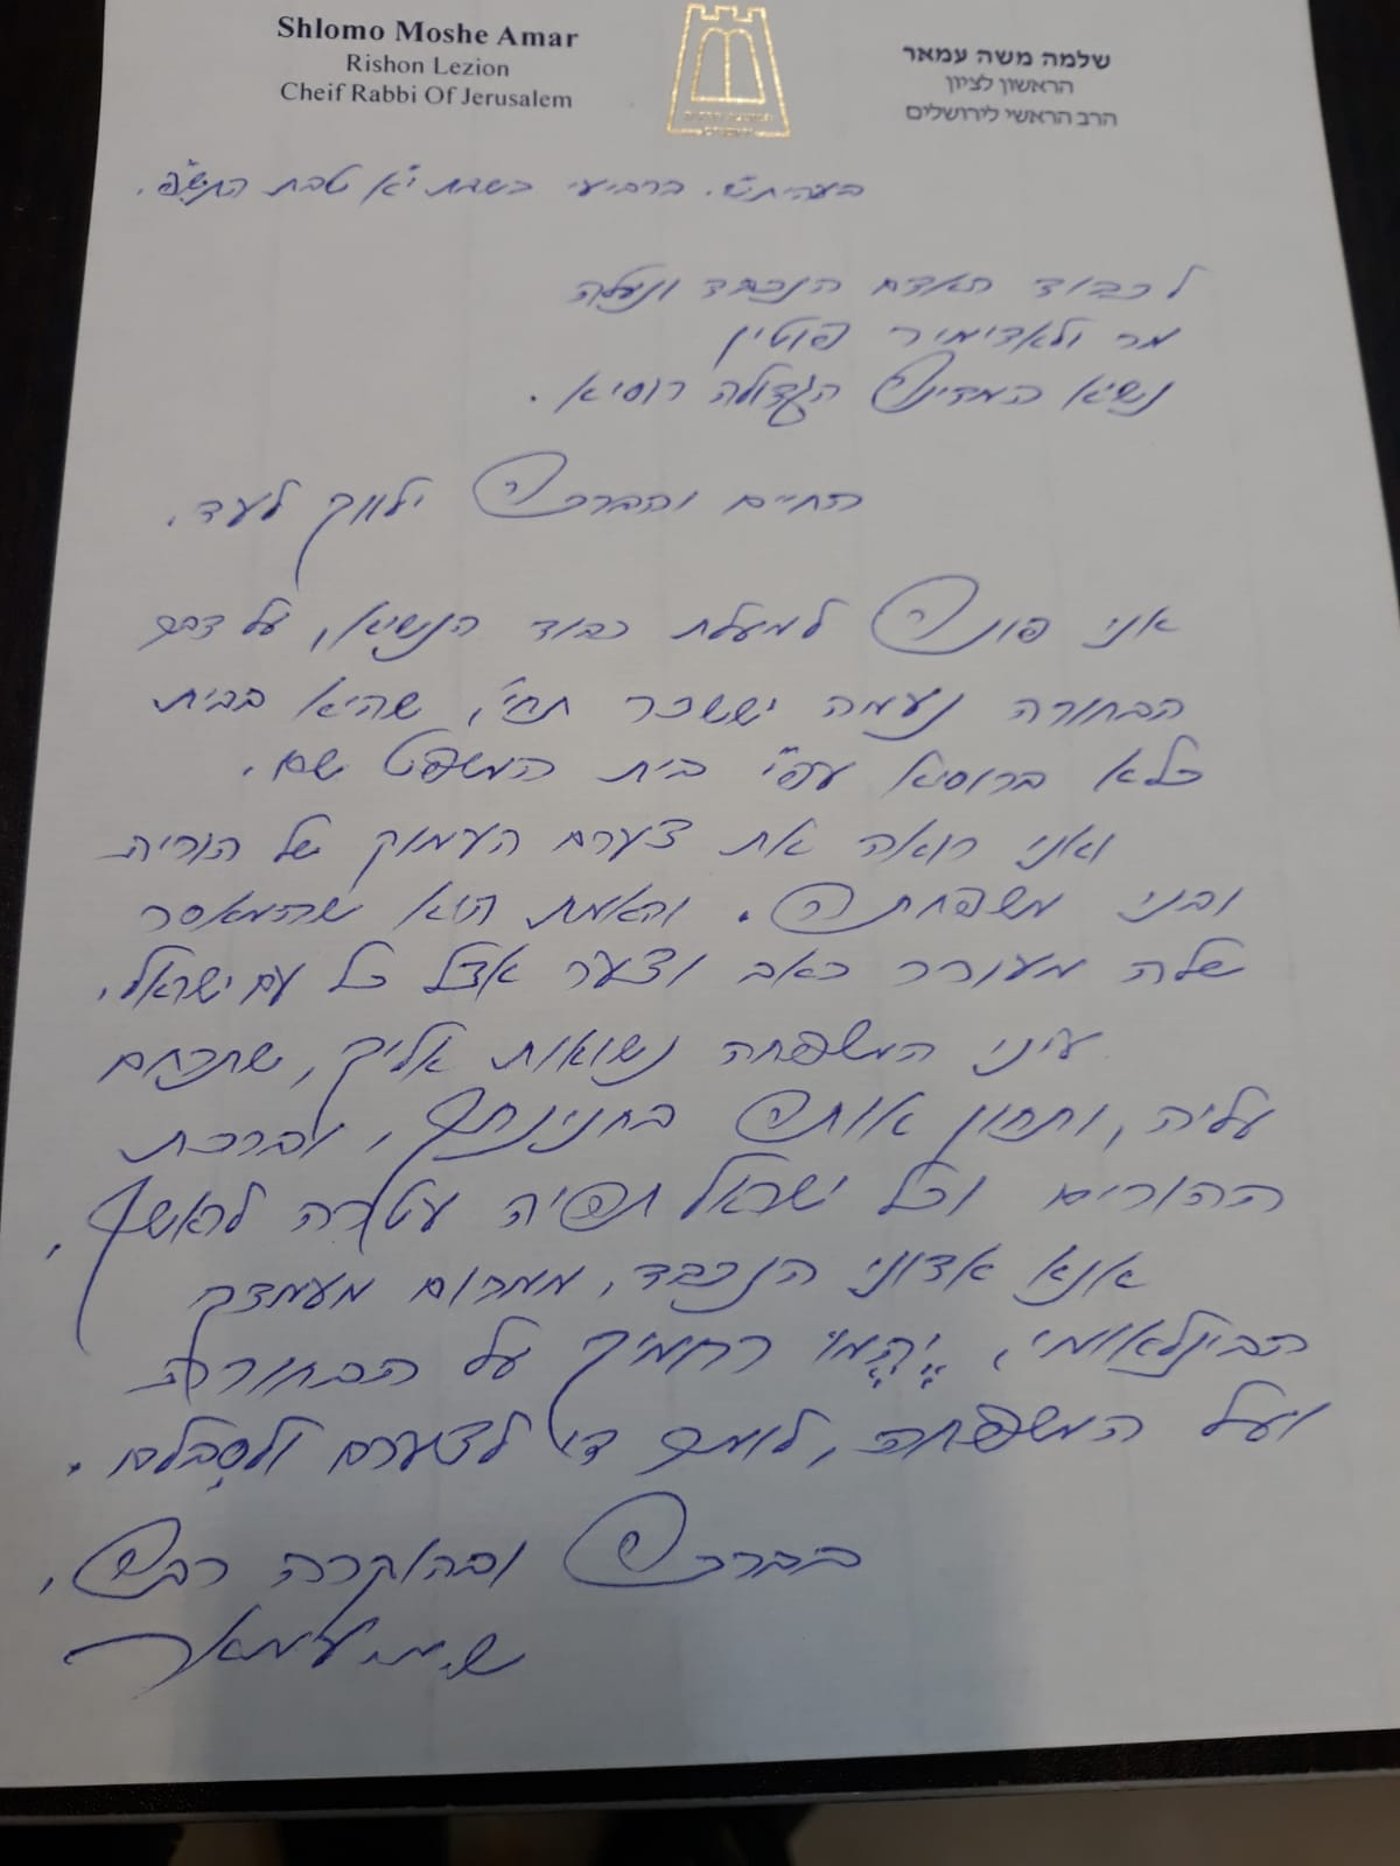 Shlomo Moshe Amar
Rishon Lezion
Cheif Rabbi Of Jerusalem
שלמה משה עמאר
הראשון לציון
הרב הראשי לירושלים
בעהית״ש. ברביעי בשבת י״א טבת התש״פ.
לכבוד האדם הנכבד ונעלה
מר ולאדימיר פוטין
נשיא המדינה הגדולה רוסיא.
החיים והברכה ילווך לעד.
אני פונה למעלת כבוד הנשיא, על דבר
הבחורה נעמה יששכר תחי׳, שהיא בבית
כלא ברוסיא עפ״י בית המשפט שם.
ואני רואה את צערם העמוק של הוריה
ובני משפחתה. והאמת הוא שהמאסר
שלה מעורר כאב וצער אצל כל עם ישראל.
עיני המשפחה נשואות אליך, שתרחם
עליה, ותחון אותה בחנינתך, וברכת
ההורים וכל ישראל תהיה עטרה לראשך,
אנא אדוני הנכבד, ממרום מעמדך
הבינלאומי, יֶהֱמוּ רחמיך על הבחורה
ועל המשפחה, לומר די לצערם ולסבלם.
בברכה ובהוקרה רבה,
ש.מ. עמאר